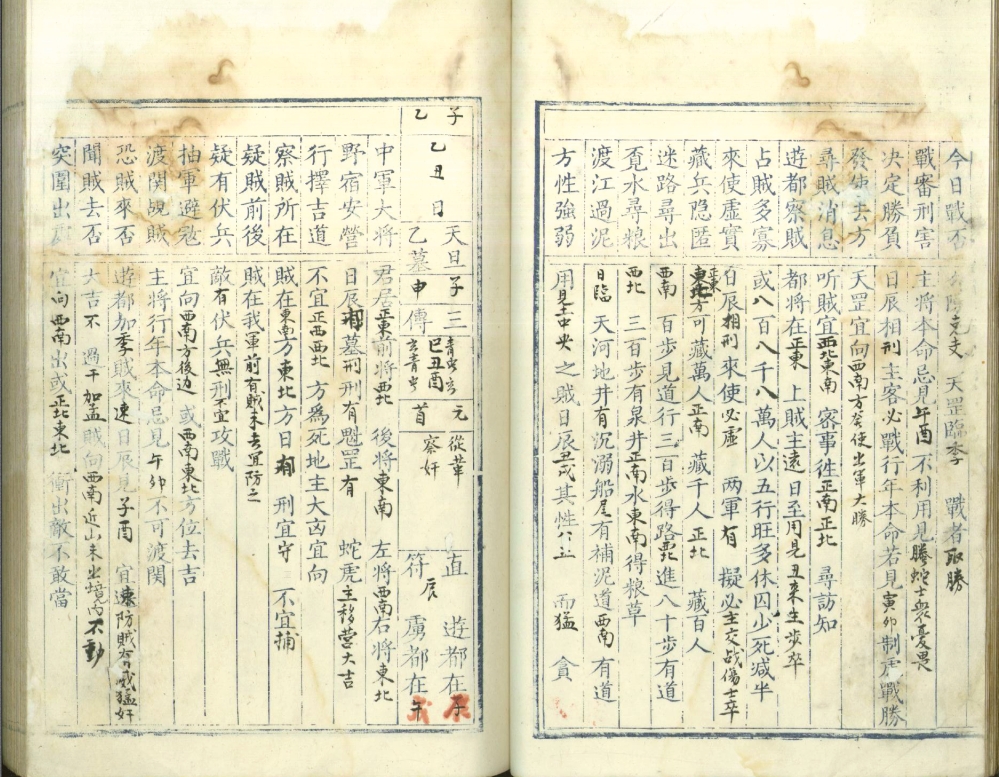 今日戰否 防支 天罡臨季 戰者取勝
戰審刑害 主將本命忌見午酉不利用見螣蛇士衆憂畏
决定勝負 日辰相刑主客必戰行年本命若見寅卯制虎戰勝
發使去方 天罡宜向西南方發使出軍大勝
尋賊消息 听賊宜西北東南 客事徃正南正北 尋訪知
遊都察賊 都將在正東 上賊主遠 日至用見丑来生步卒
占賊多寡 或八百八千八萬人以五行旺多休囚少死减半
來使虛實 日辰相刑來使必虛 两軍有 擬必主交战傷士卒
藏兵隐匿 東北方可藏萬人正南 藏千人正北 藏百人
迷路尋出 西南 百步見道行三百步得路 進八十步有道
覔水尋粮 西北 三百步有泉井正南水東南得粮草
渡江過泥 日臨 天河地井有沉溺船 有補泥道西南 有道
方性強弱 用見土中央之賊日辰丑戌其性 而猛 貪
子 乙
乙丑日
天旦子 三 元 從革 直 遊都在
乙墓申 傳 巳丑酉 首 察奸 符 辰 虜都在午
中軍大將 君居正東前將西北 後將東南 左將西南右將東北
野宿安營 日辰 墓刑刑有魁罡有 蛇虎主移营大吉
行擇吉道 不宜正西西北 方為死地主大㐫宜向
察賊所在 賊在東南方東北方日有 刑宜守 不宜捕
疑賊前後 賊在我軍前有賊未去宜防之
疑有伏兵 敵有伏兵無刑不宜攻戰
抽軍避𢦤 宜向西南方後边 或西南東北方位去吉
渡関覘賊 主將行年本命忌見午卯不可渡関
恐賊來否 遊都加季賊來速日辰見子酉 宜速防賊有威猛奸
聞賊去否 大吉不 過干加孟賊向西南近山未出境内不動
突圍出 宜向西南出或正北東北 衝出敵不敢當